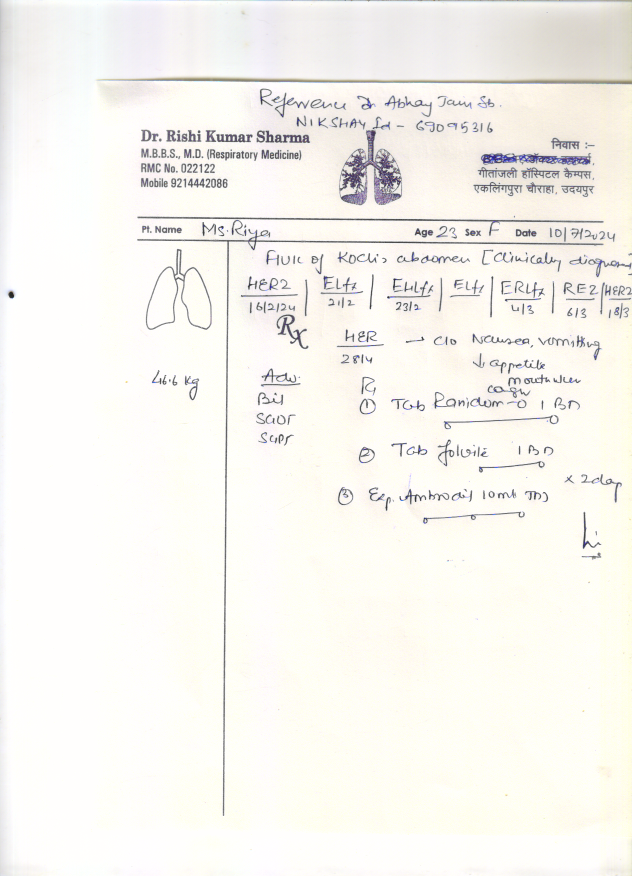 Reference Dr Abhay Jain Sb.
NIKSHAY Id - 69095316
Dr. Rishi Kumar Sharma
M.B.B.S., M.D. (Respiratory Medicine)
RMC No. 022122
Mobile 9214442086
निवास :–
गीतांजली हॉस्पिटल कैम्पस,
एकलिंगपुरा चौराहा, उदयपुर
Pt. Name Ms. Riya Age 23 Sex F Date 10/7/2024
of Koch's abdomen [Clinically
HERZ | ELfx | EHLfx | ELfx | ERLfx | REZ | HERZ
16/2/24 21/2 23/2 4/3 6/3 18/3
Rx
HER → C/O Nausea, vomiting
28/4 ↓ appetite
mouth ulcer
cough
46.6 Kg
Adv.
Bil
SGOT
SGPT
R
① Tab Ranidom-O 1 BD
② Tab folvite 1 BD
x 2 day
③ Exp. Ambrodil 10ml TDS